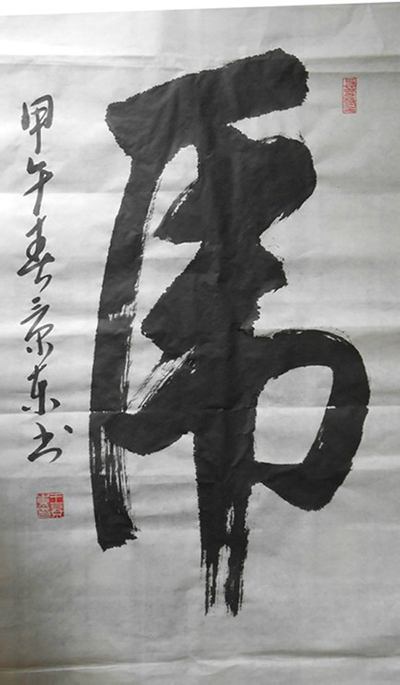 虎
甲午春京东书